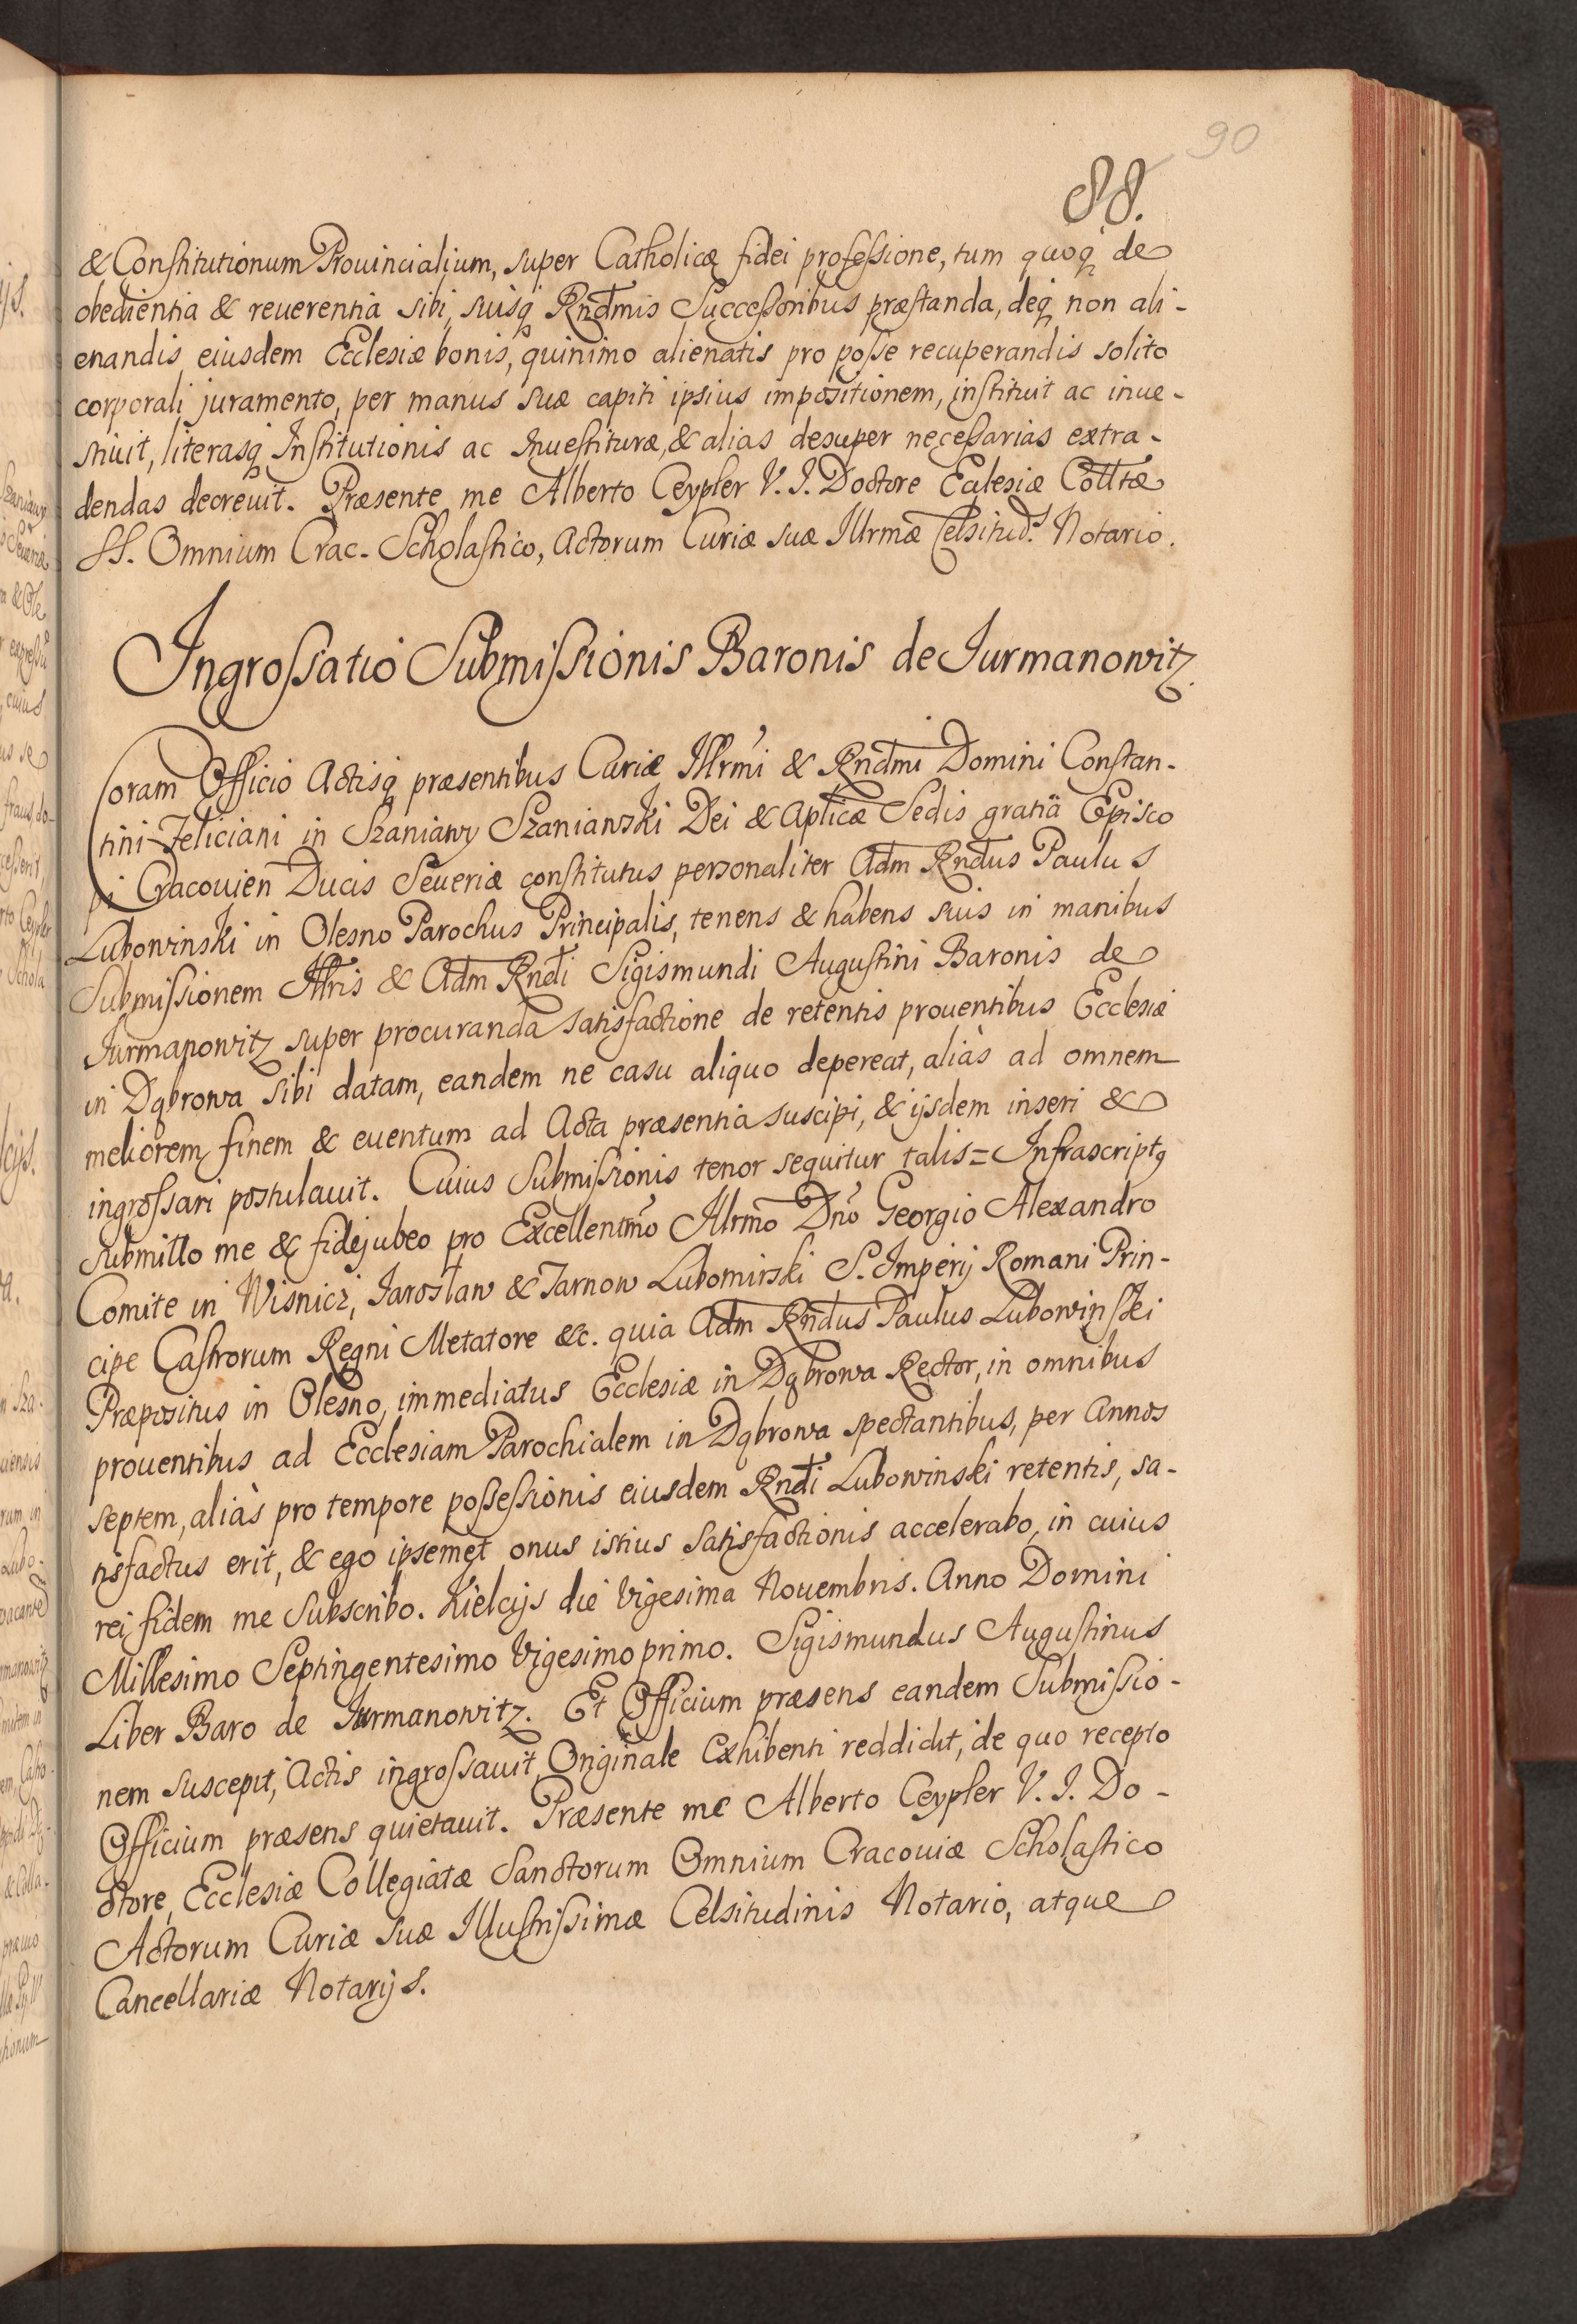 90
88.
& Constitutionum Prouincialium, super Catholicæ fidei professione, tum quoq̃ de
obedientia & reuerentia sibi, suisq̃ Rndm̃is Successoribus præstanda, deq̃ non ali-
enandis eiusdem Ecclesiæ bonis, quinimo alienatis pro posse recuperandis solito
corporali juramento, per manus suæ capiti ipsius impositionem, instituit ac inue-
stiuit, literasq̃ Institutionis ac Inuestituræ, & alias desuper necessarias extra-
dendas decreuit. Præsente me Alberto Ceypler V. J. Doctore Eclesiæ Colltæ
SS. Omnium Crac. Scholastico, Actorum Curiæ suæ Illrmæ Celsitud: Notario.
Ingrossatio Submissionis Baronis de Jurmanowitz.
Coram Officio Actisq̃ præsentibus Curiæ Illrmi & Rndmi Domini Constan-
tini Feliciani in Szaniawy Szaniawski Dei & Aplicæ Sedis gratiâ Episco
pi Cracouien Ducis Seueriæ constitutus personaliter Adm Rndus Paulus
Lubowinski in Olesno Parochus Principalis, tenens & habens suis in manibus
Submissionem Illris & Adm Rndi Sigismundi Augustini Baronis de
Jurmanowitz super procuranda satisfactione de retentis prouentibus Ecclesiæ
in Dąbrowa sibi datam, eandem ne casu aliquo depereat, aliàs ad omnem
meliorem finem & euentum ad Acta præsentia suscipi, & ijsdem inseri &
ingrossari postulauit. Cuius Submissionis tenor sequitur talis = Infrascriptꝰ
submitto me & fidejubeo pro Excellentmo Illrmo Dno Georgio Alexandro
Comite in Wisnicz, Jaroslaw & Tarnow Lubomirski S. Imperij Romani Prin-
cipe Castrorum Regni Metatore &c. quia Adm Rndus Paulus Lubowinski
Præpositus in Olesno, immediatus Ecclesiæ in Dąbrowa Rector, in omnibus
prouentibus ad Ecclesiam Parochialem in Dąbrowa spectantibus, per Annos
septem, aliàs pro tempore possessionis eiusdem Rndi Lubowinski retentis, sa-
tisfactus erit, & ego ipsemet onus istius satisfactionis accelerabo, in cuius
rei fidem me subscribo. Kielcijs die Vigesima Nouembris. Anno Domini
Millesimo Septingentesimo Vigesimo primo. Sigismundus Augustinus
Liber Baro de Jurmanowitz. Et Officium præsens eandem Submissio-
nem suscepit, Actis ingrossauit, Originale Exhibenti reddidit, de quo recepto
Officium præsens quietauit. Præsente me Alberto Ceypler V. J. Do-
ctore, Ecclesiæ Collegiatæ Sanctorum Omnium Cracouiæ Scholastico
Actorum Curiæ suæ Illustrissimæ Celsitudinis Notario, atque
Cancellariæ Notarijs.